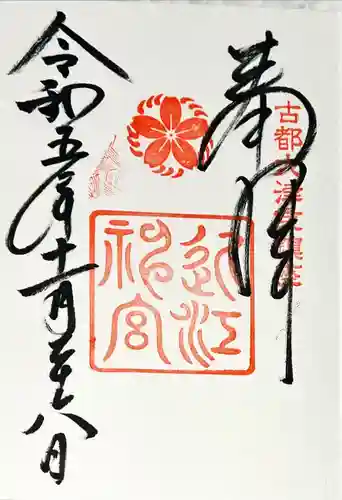 奉拝
古都大津京鎮座
近江
神宮
令和五年十一月二十八日